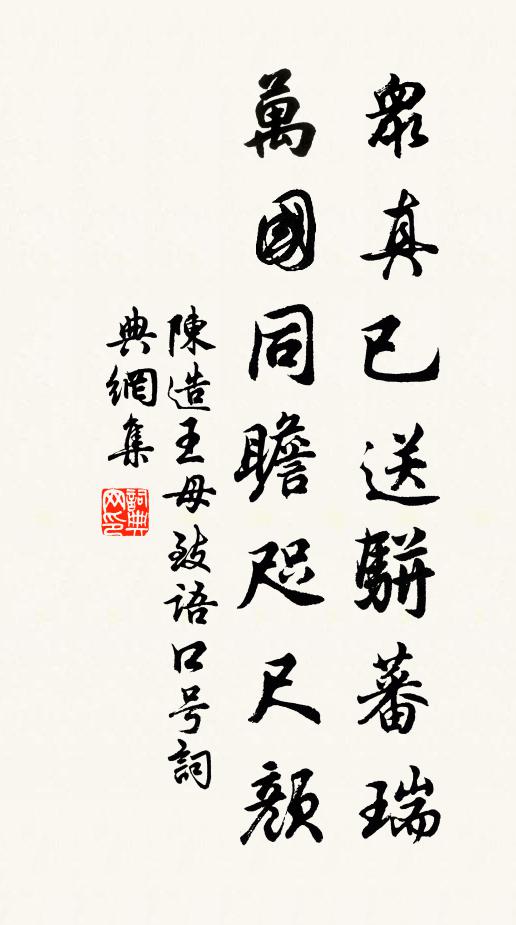 眾真已送駢蕃瑞
萬國同瞻咫尺顏
陳造王母致語口号詞
典網集
詞典网印